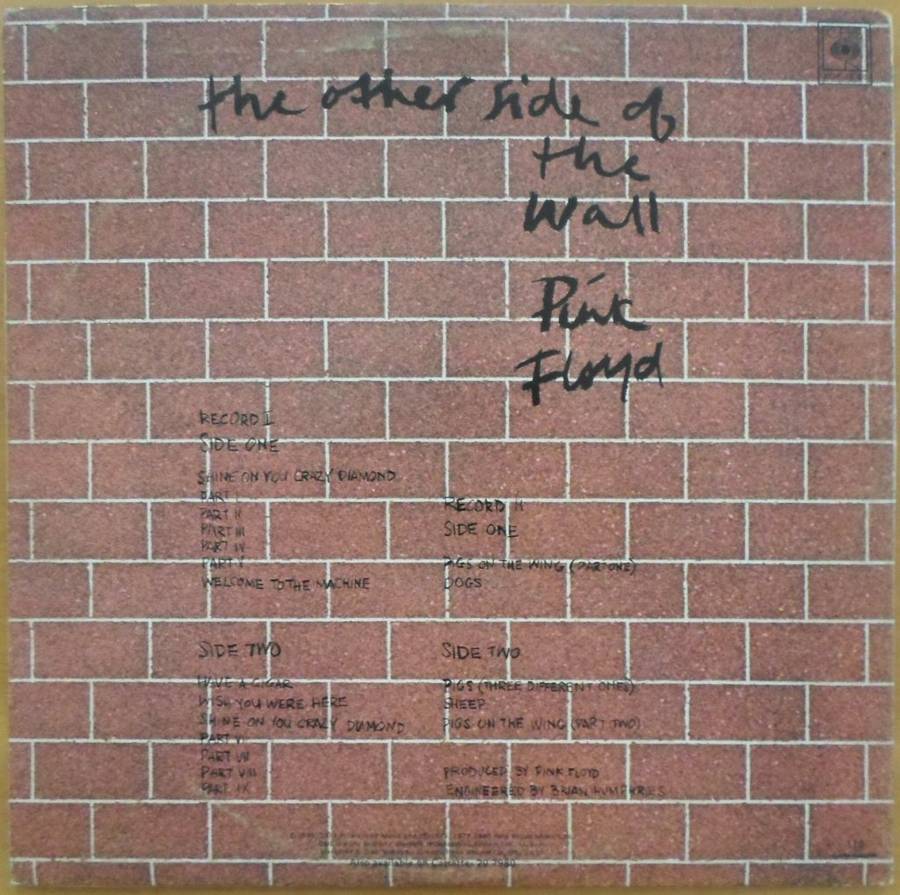 the other side of
the
Wall
Pink
Floyd
RECORD I
SIDE ONE
SHINE ON YOU CRAZY DIAMOND
PART I
PART II
PART III
PART IV
PART V
WELCOME TO THE MACHINE
SIDE TWO
HAVE A CIGAR
WISH YOU WERE HERE
SHINE ON YOU CRAZY DIAMOND
PART VI
PART VII
PART VIII
PART IX
RECORD II
SIDE ONE
PIGS ON THE WING (PART ONE)
DOGS
SIDE TWO
PIGS (THREE DIFFERENT ONES)
SHEEP
PIGS ON THE WING (PART TWO)
PRODUCED BY PINK FLOYD
ENGINEERED BY BRIAN HUMPHRIES